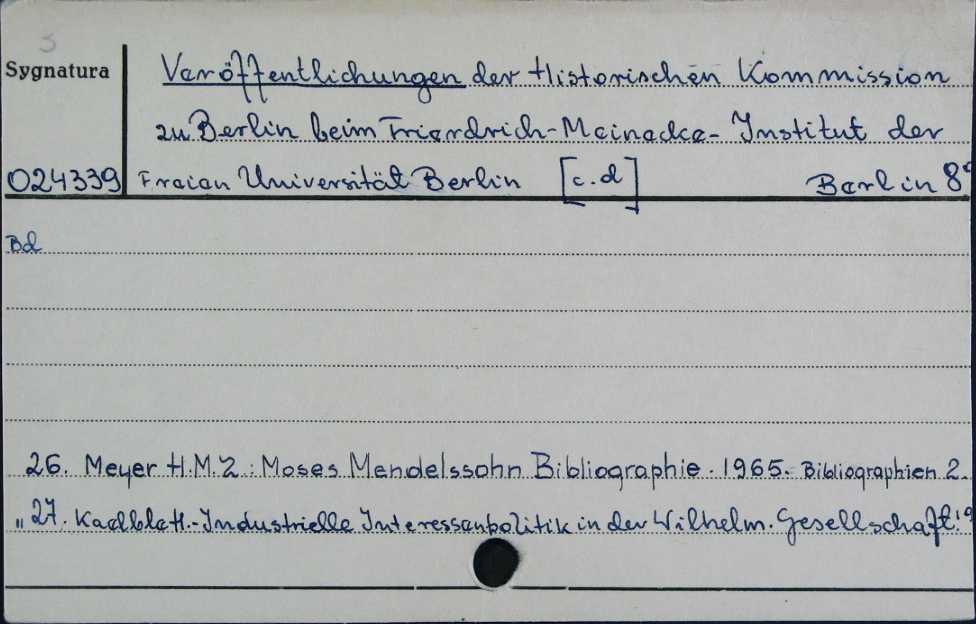 3
Sygnatura
Veröffentlichungen der Historischen Kommission
zu Berlin beim Friedrich-Meinecke-Institut der
024339 Freien Universität Berlin [c.d] Berlin 8°
Bd
26. Meyer H.M.Z: Moses Mendelssohn Bibliographie. 1965.- Bibliographien 2.
"27. Kaelble H.-Industrielle Interessenpolitik in der Wilhelm. Gesellschaft.